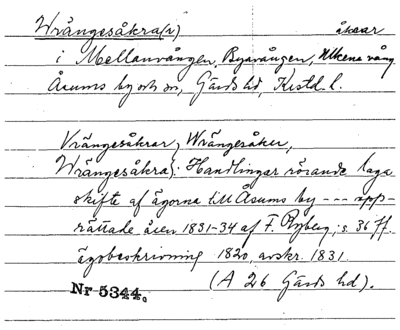 Wrångesåkra(r) åkrar
i Mellanvången, Byavången, Utkena vång
Åsums by och sn, Gärds hd, Kristd. l.
Vrångesåkrar, Wrångesåker,
Wrångesåkra: Handlingar rörande laga
skifte af ägorna till Åsums by --- upp-
rättade åren 1831-34 af F. Ryberg, s. 36 ff.
ägobeskrivning 1820, avskr. 1831.
(A 26 Gärds hd).
Nr 5344.